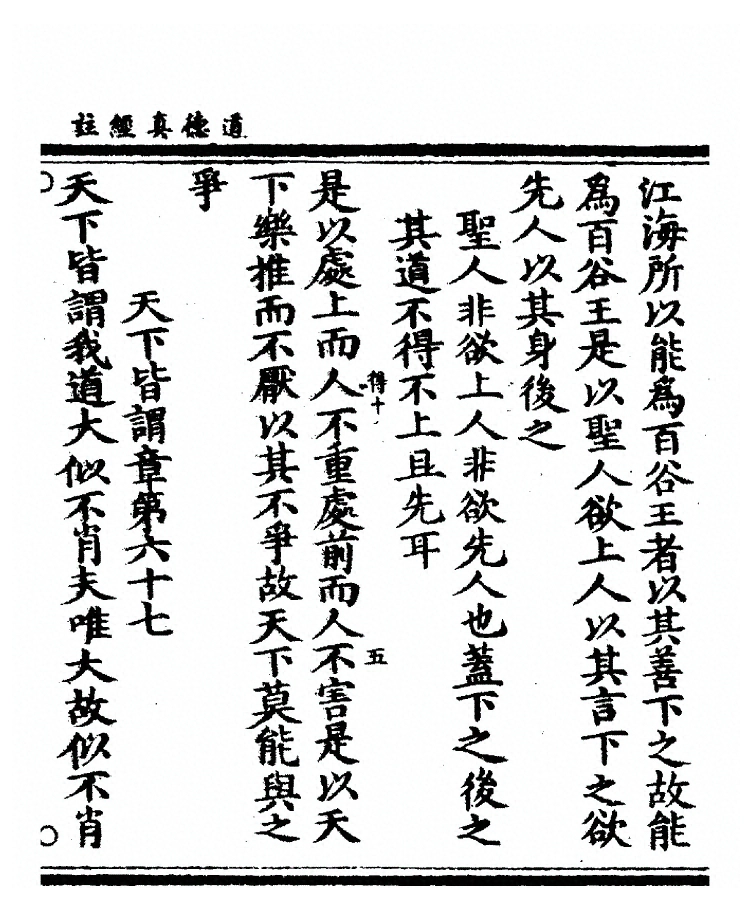 道德真經註
江海所以能爲百谷王者以其善下之故能
爲百谷王是以聖人欲上人以其言下之欲
先人以其身後之
聖人非欲上人非欲先人也蓋下之後之
其道不得不上且先耳
得十
五
是以處上而人不重處前而人不害是以天
下樂推而不厭以其不爭故天下莫能與之
爭
天下皆謂章第六十七
天下皆謂我道大似不肖夫唯大故似不肖